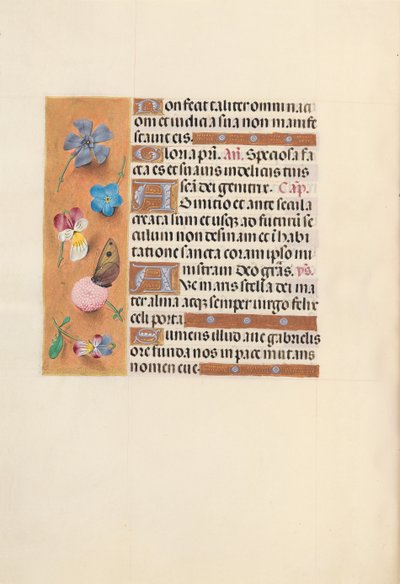 Non fecit taliter omni naci
oni et iudicia sua non manife
stavit eis.
Gloria pri. An. Speciosa fa
cta es et suavis in deliciis tuis
scā dei genitrix. Cap.
Ab initio et ante secula
creata sum et usqz ad futurū se
culum non desinam et ī habi
tatione sancta coram ipso mi
nistravi. Deo grās. ys.
Ave maris stella dei ma
ter alma atqz semper virgo felix
celi porta
Sumens illud ave gabrielis
ore funda nos in pace mutans
nomen eve.